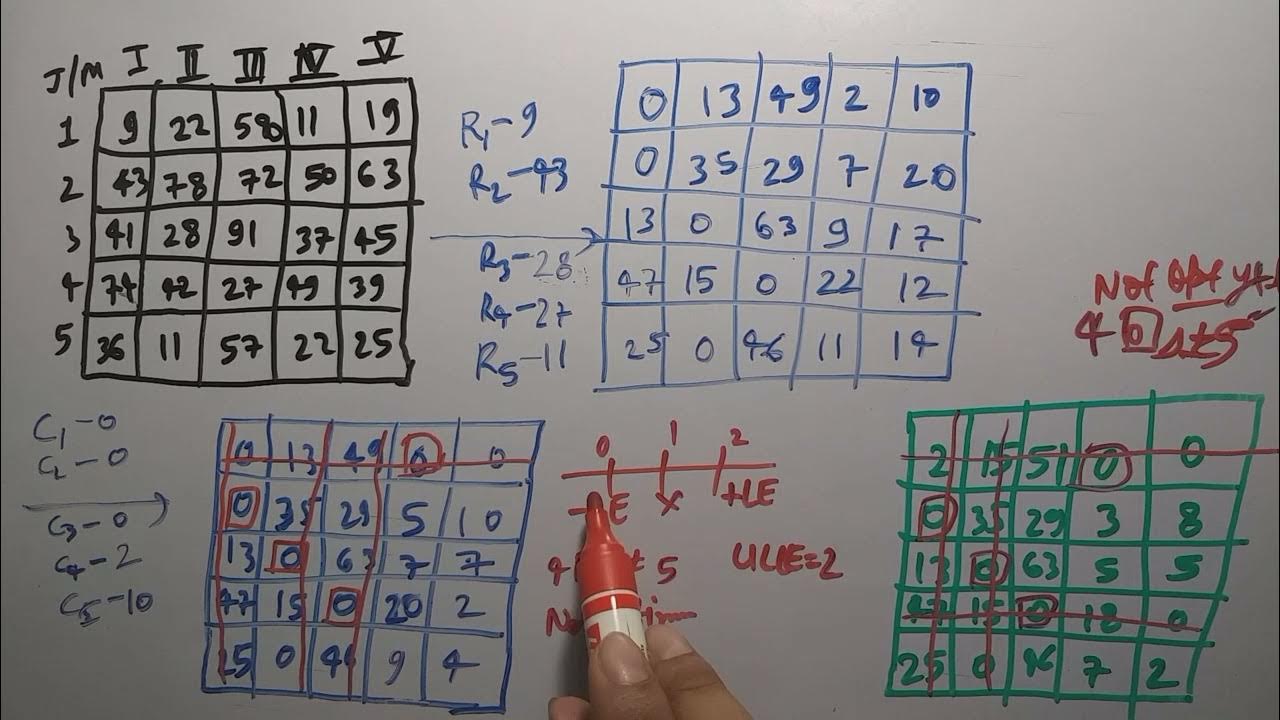 J/M I II III IV V
1 9 22 58 11 19
2 43 78 72 50 63
3 41 28 91 37 45
4 74 42 27 49 39
5 36 11 57 22 25
R1-9
R2-43
R3-28
R4-27
R5-11
0 13 49 2 10
0 35 29 7 20
13 0 63 9 17
47 15 0 22 12
25 0 46 11 14
Not opt
4 0 ≠ 5
C1-0
C2-0
C3-0
C4-2
C5-10
0 13 49 0 0
0 35 29 5 10
13 0 63 7 7
47 15 0 20 2
25 0 46 9 4
0 1 2
E X +LE
4 5 ULIE=2
2 15 51 0 0
0 35 29 3 8
13 0 63 5 5
47 15 0 18 0
25 0 46 7 2